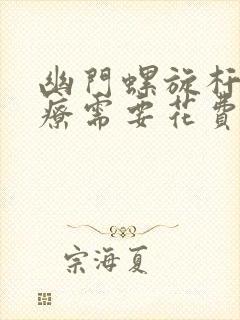 幽門螺旋杆
療需要花費
宗海夏